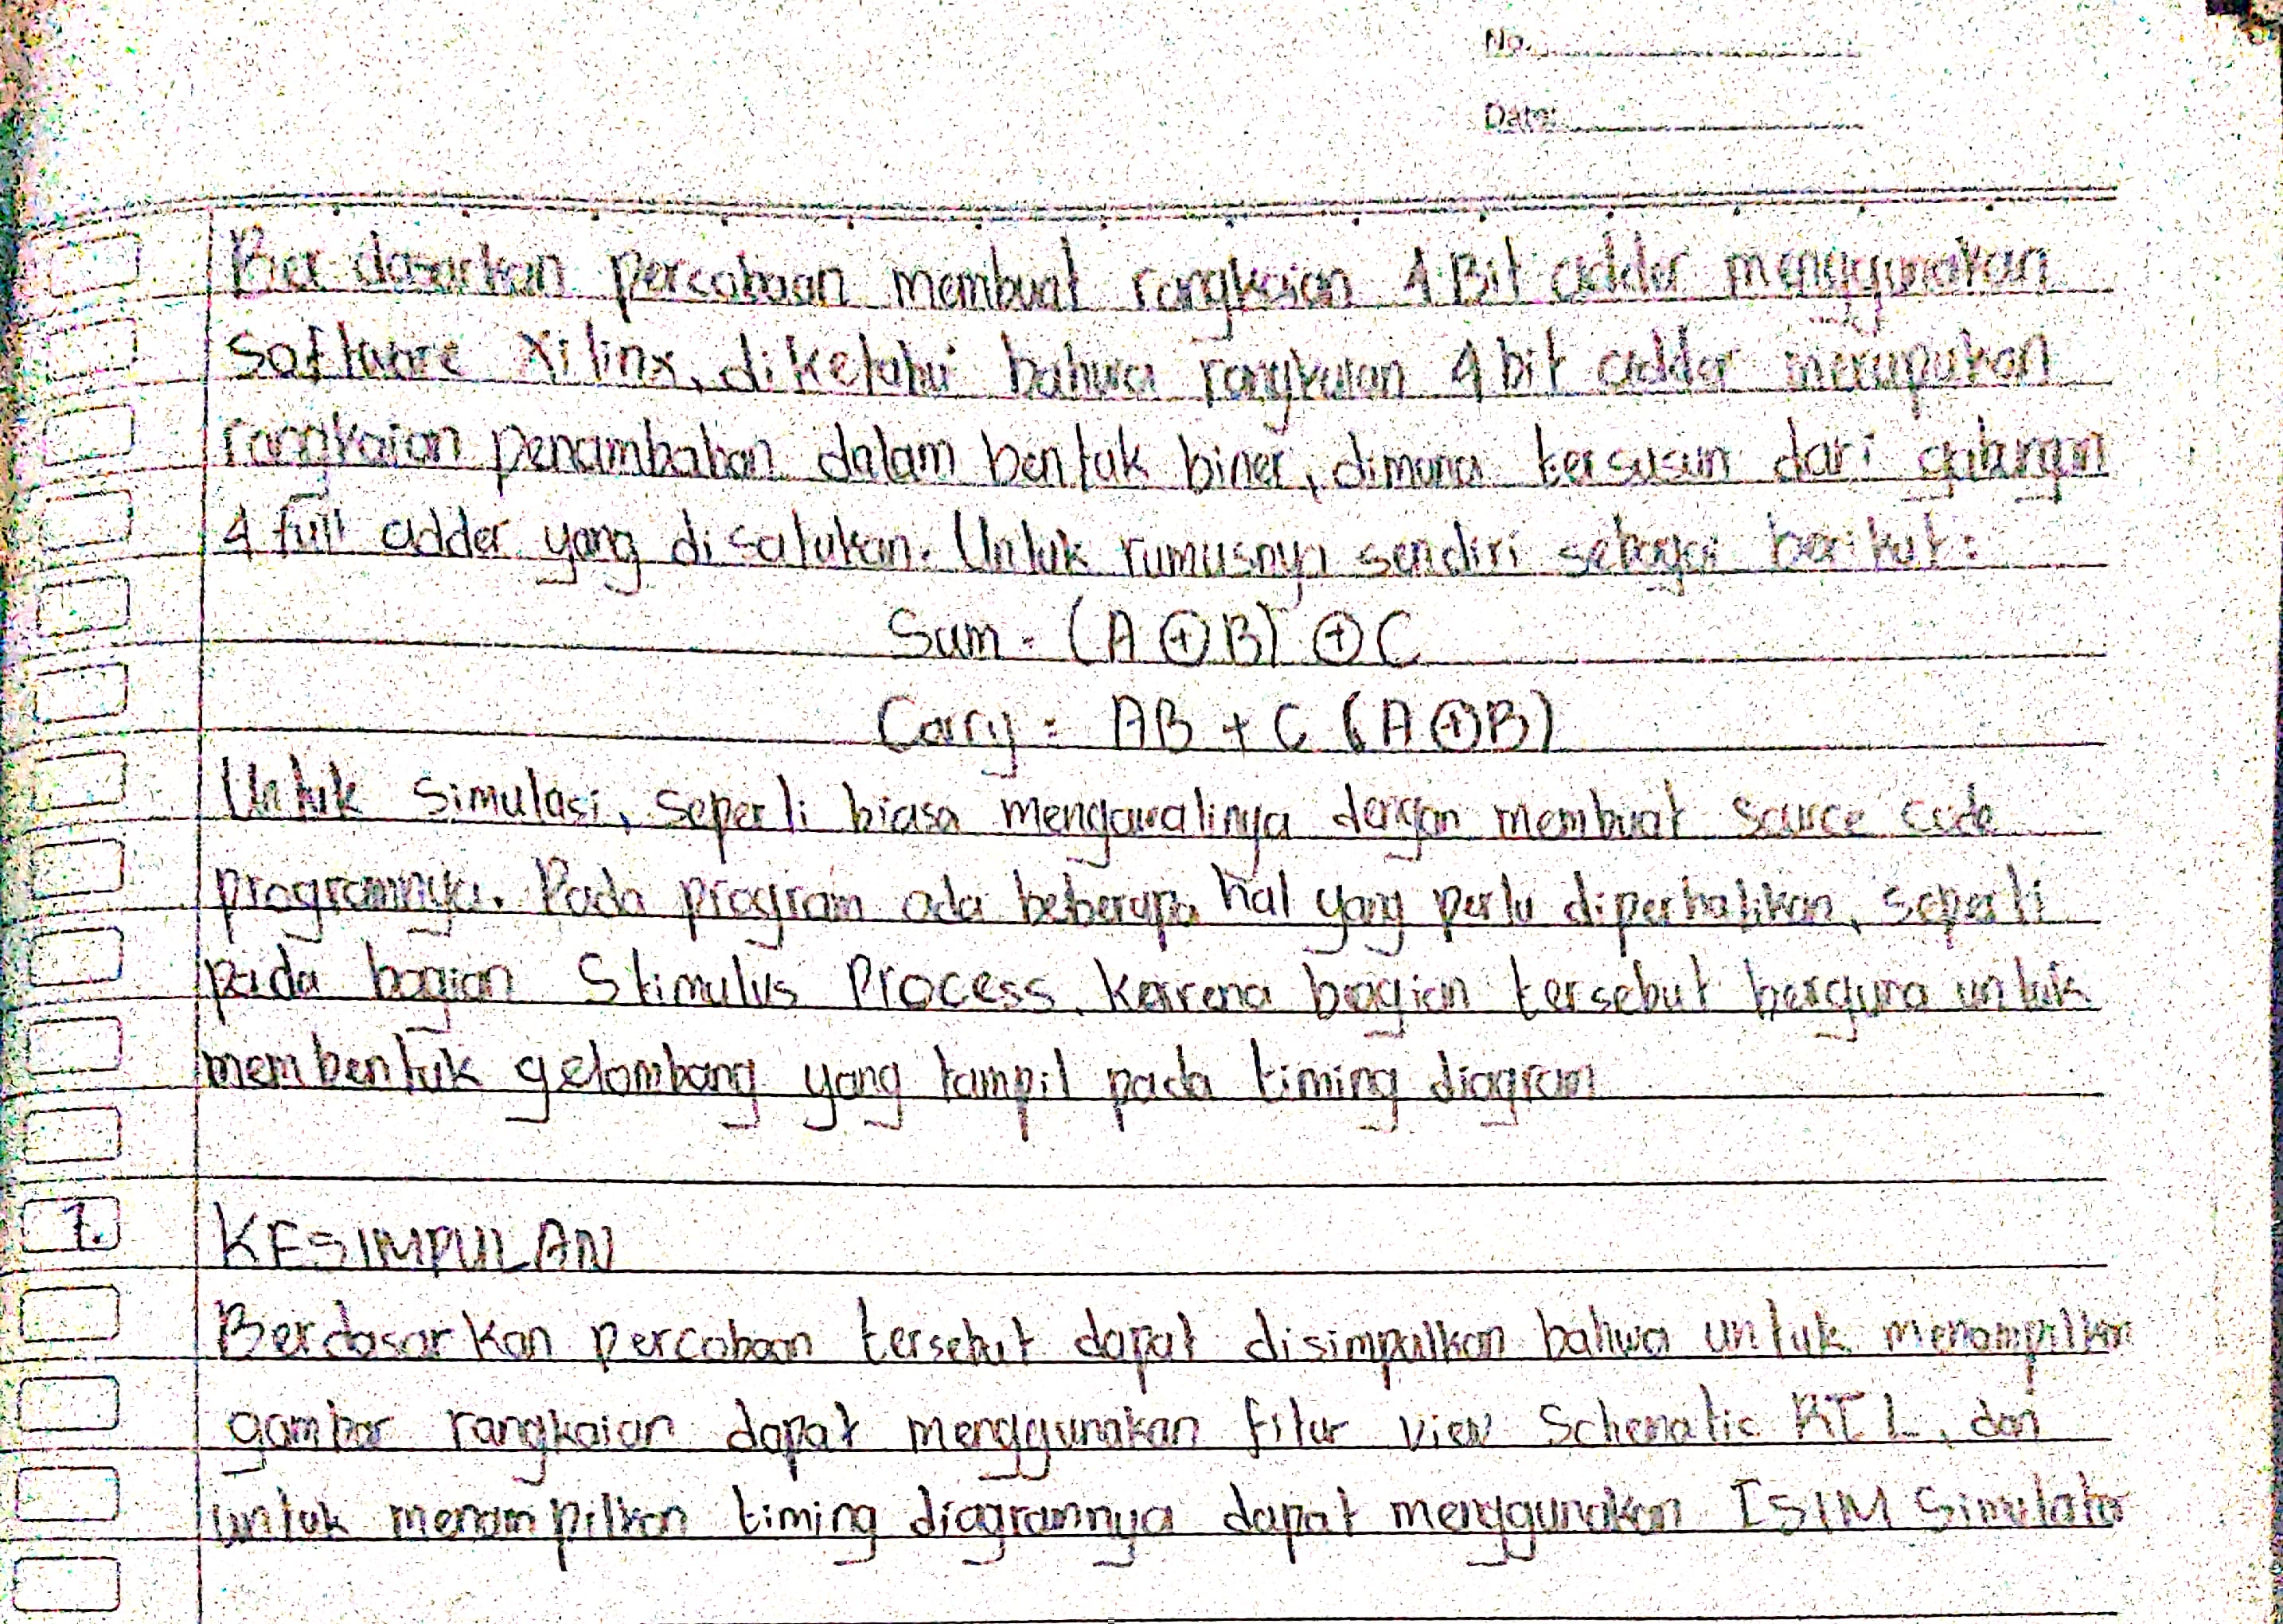 No.
Date:
Berdasarkan percobaan membuat rangkaian 4 Bit adder menggunakan
Software Xilinx, diketahui bahwa rangkaian 4 bit adder merupakan
rangkaian penambahan dalam bentuk biner, dimana tersusun dari gabungan
4 full adder yang disatukan. Untuk rumusnya sendiri sebagai berikut:
Sum = (A ⊕ B) ⊕ C
Carry = AB + C (A ⊕ B)
Untuk simulasi, seperti biasa mengawalinya dengan membuat source code
programnya. Pada program ada beberapa hal yang perlu diperhatikan, seperti
pada bagian Stimulus Process. Karena bagian tersebut berguna untuk
membentuk gelombang yang tampil pada timing diagram
7. KESIMPULAN
Berdasarkan percobaan tersebut dapat disimpulkan bahwa untuk menampilkan
gambar rangkaian dapat menggunakan fitur view Schematic RTL, dan
untuk menampilkan timing diagramnya dapat menggunakan ISIM Simulator